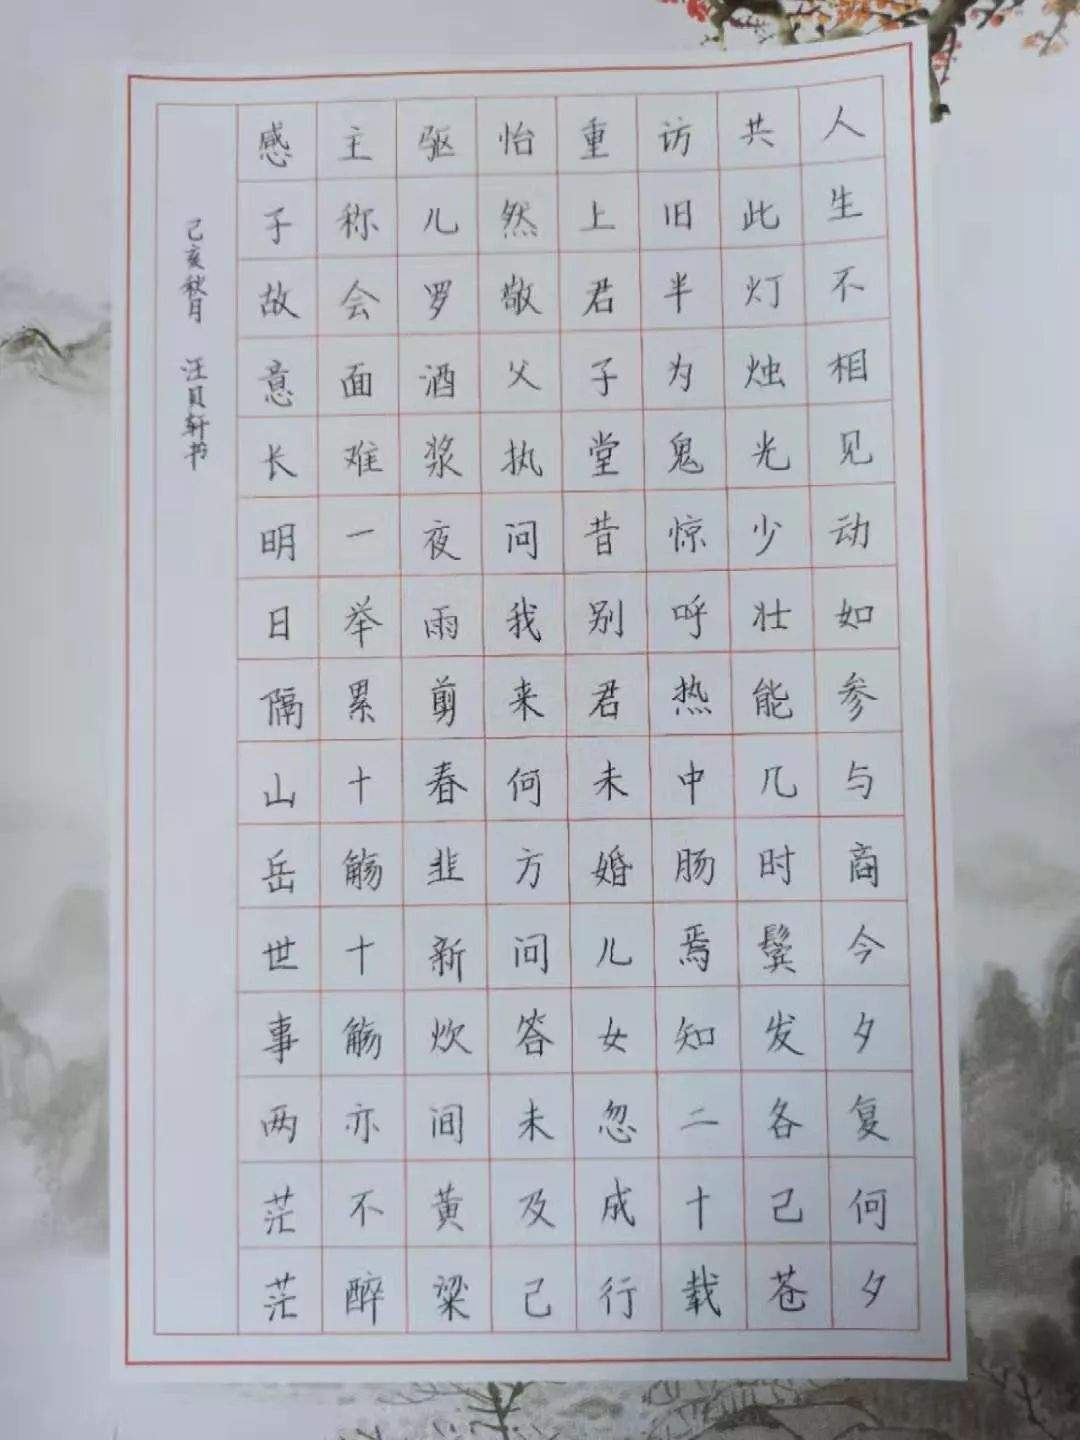 人生不相见动如参与商今夕复何夕
共此灯烛光少壮能几时鬓发各己苍
访旧半为鬼惊呼热中肠焉知二十载
重上君子堂昔别君未婚儿女忽成行
怡然敬父执问我来何方问答未及己
驱儿罗酒浆夜雨剪春韭新炊间黄粱
主称会面难一举累十觞十觞亦不醉
感子故意长明日隔山岳世事两茫茫
己亥秋月 汪贝轩书